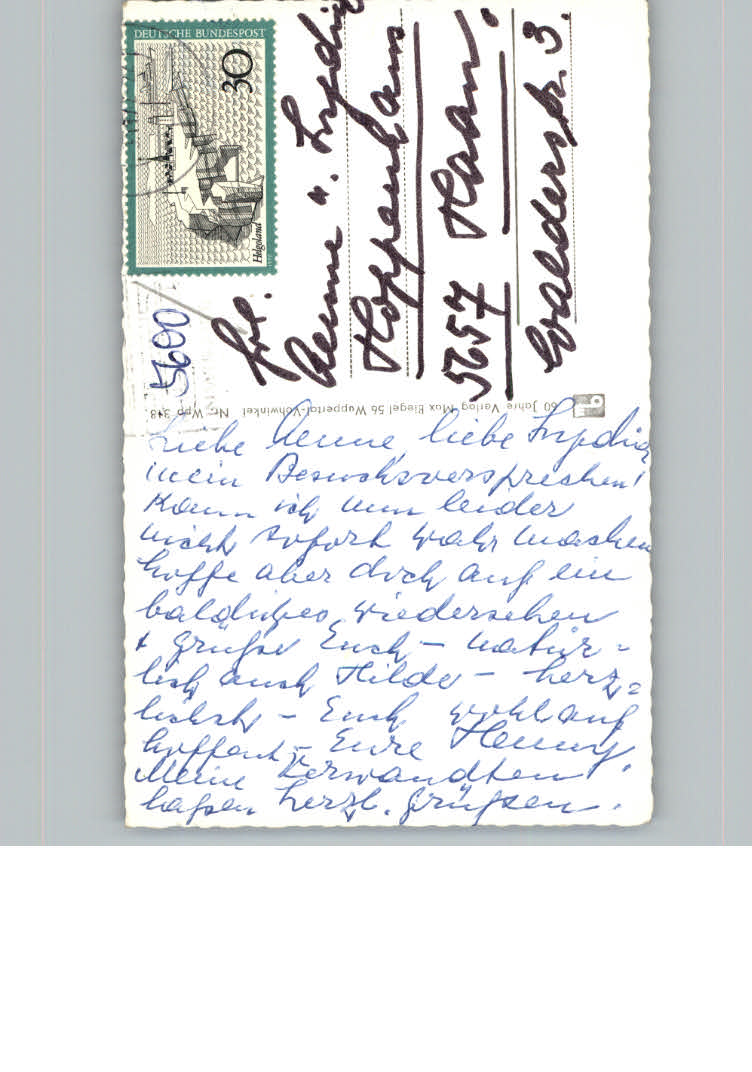 DEUTSCHE BUNDESPOST
30
Helgoland
5600
Frl.
Aenne u.
Hoppenhaus
5657 Haan.
Walderstr. 3.
60 Jahre Verlag Max Biegel 56 Wuppertal-Vohwinkel Nr. Wpp 348
Liebe Aenne, liebe
mein Besuchsversprechen
kann ich nun leider
nicht sofort wahr machen
hoffe aber doch auf ein
baldiges Wiedersehen
+ grüße Euch - natür=
lich auch Hilde - herz=
lichst - Euch wohlauf
hoffend - Eure Henny.
Meine Verwandten
laßen herzl. grüßen.